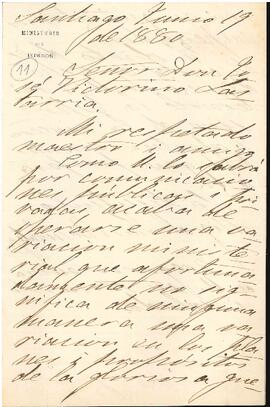 Santiago Junio 19
de 1880.
MINISTERIO
DEL
INTERIOR
11
Señor Don Jo
sé Victorino Las
tarria.
Mi respetado
maestro i amigo
Como Ud. lo sabrá
por comunicacio
nes públicas i pri
vadas, acaba de
operarse una va
riacion ministe
rial que afortuna
damente no sig
nifica de ninguna
manera una va
riacion en los pla
nes i propósitos
de la gloriosa gue